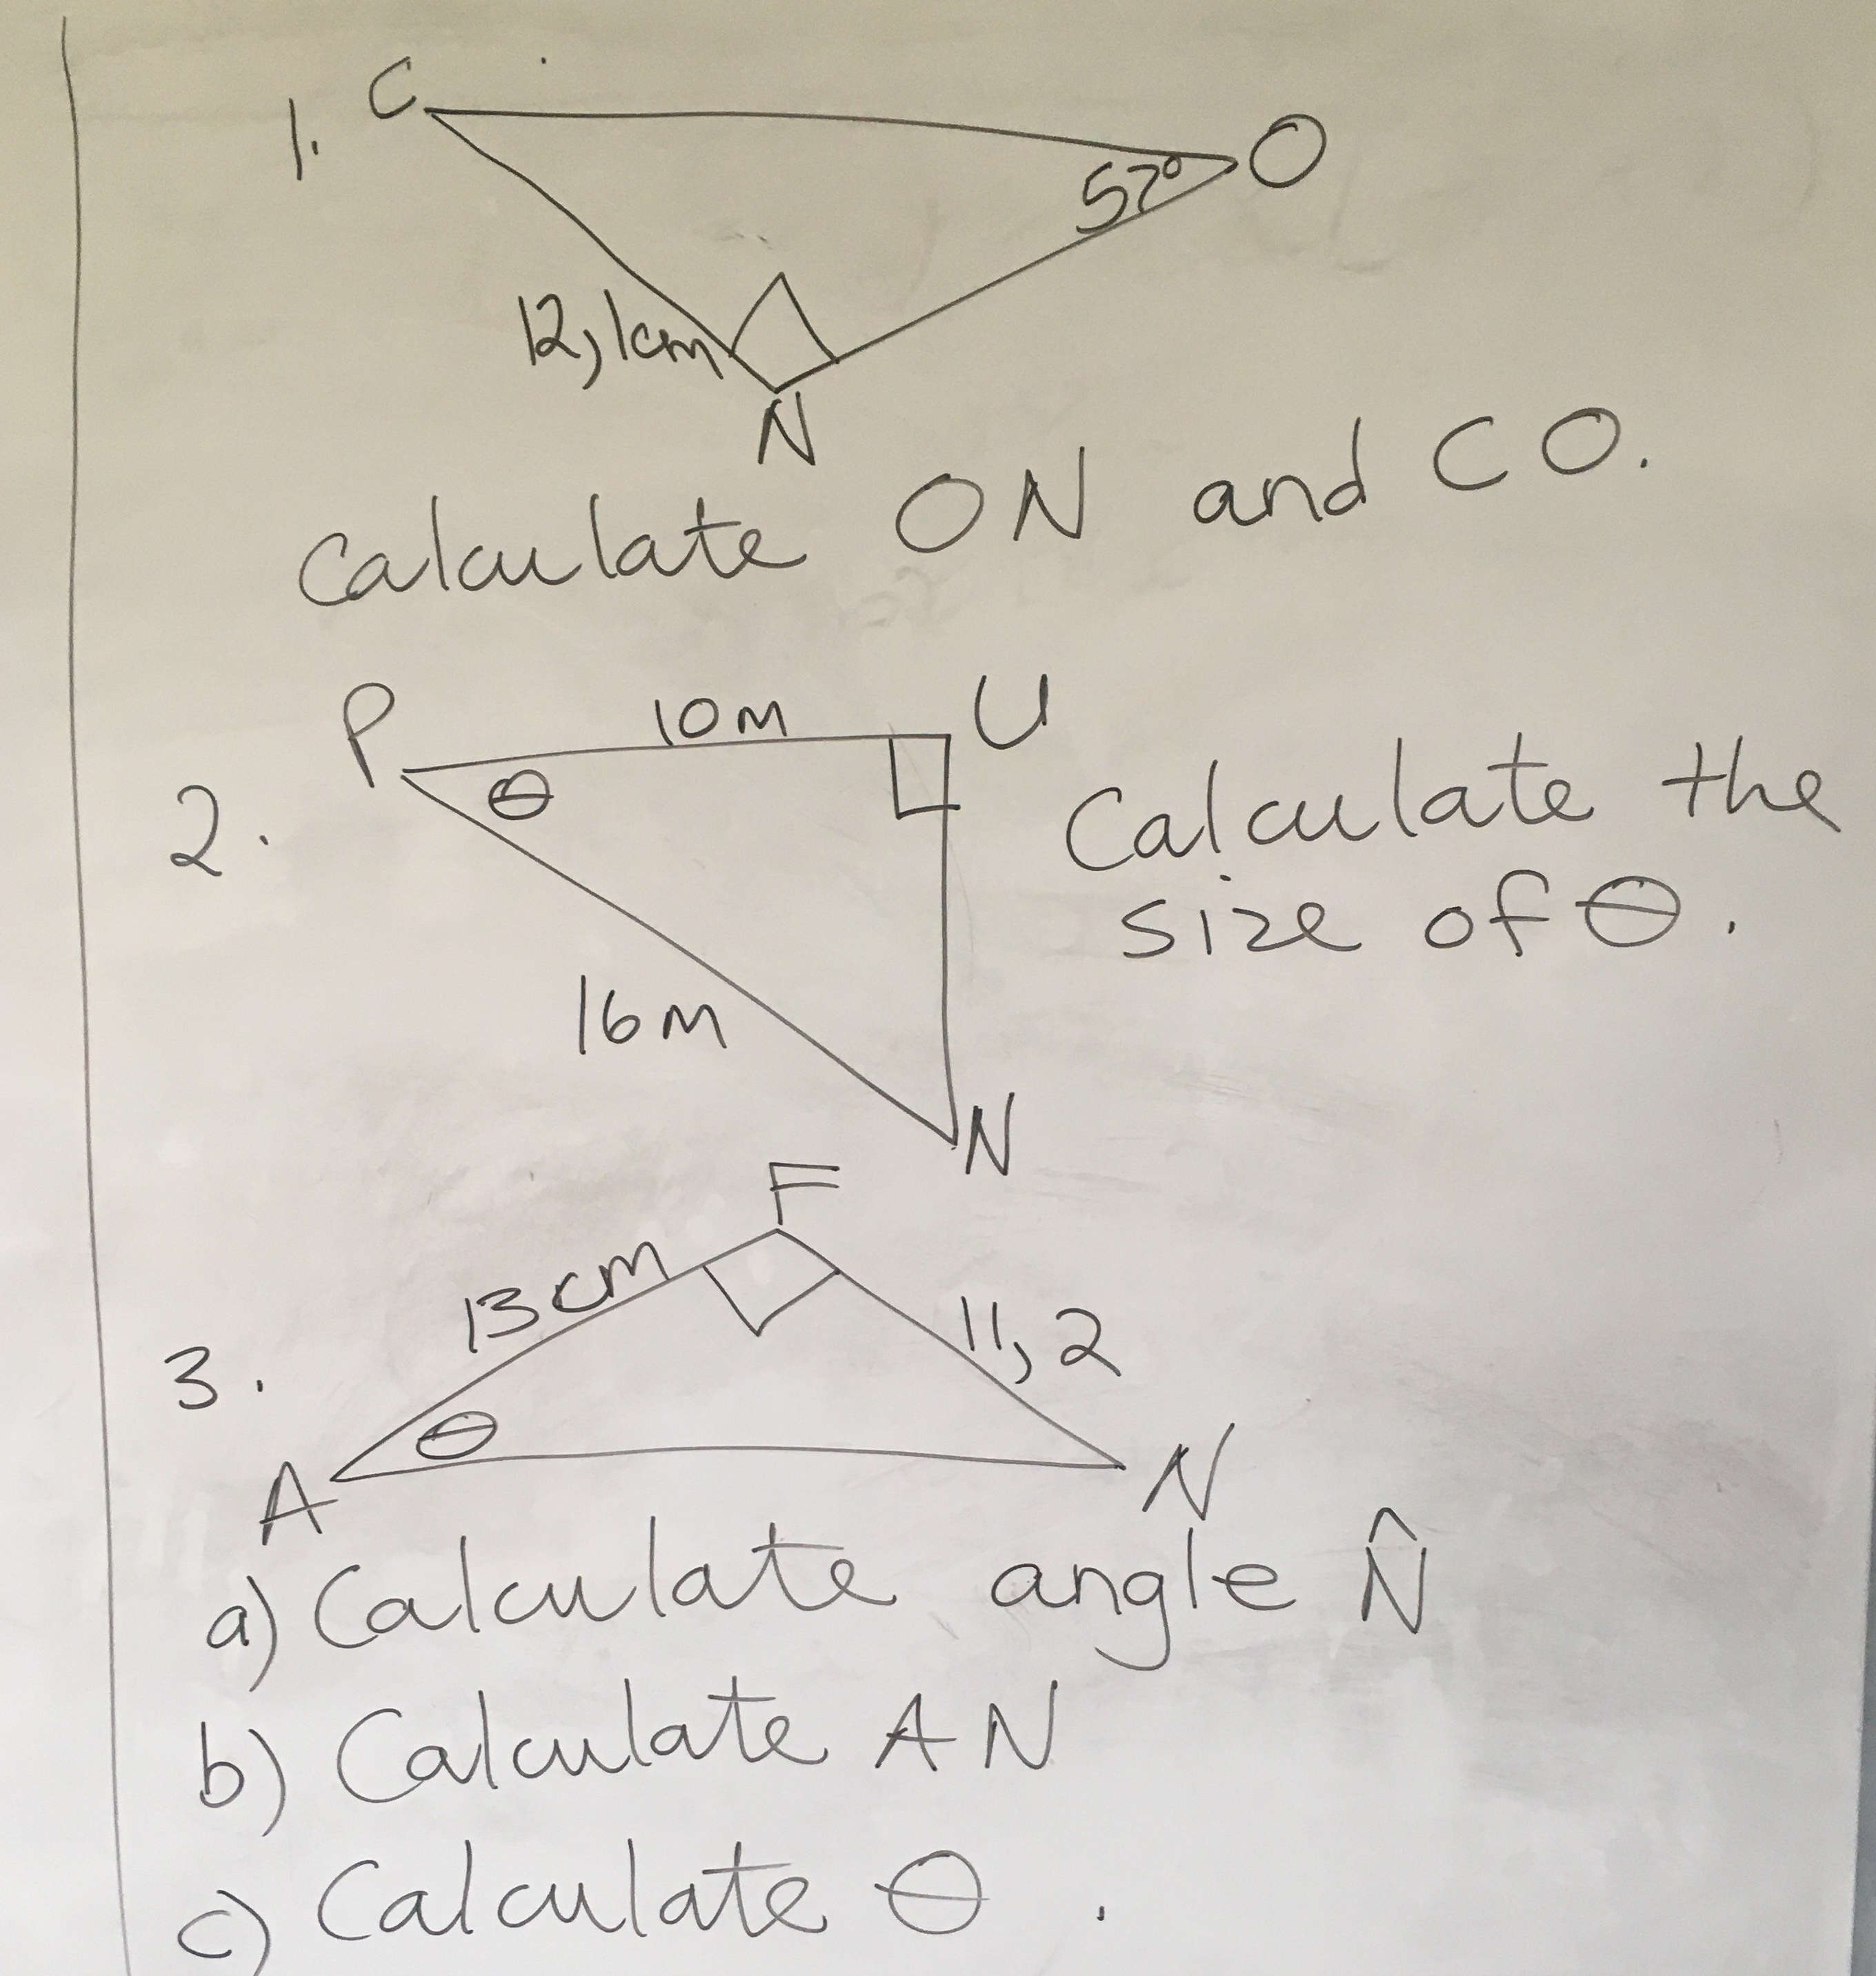 1. C
O
57°
12,1cm
N
Calculate ON and CO.
P 10m U
2. θ
Calculate the
size of θ.
16m
N
F
13cm
11,2
3. θ
A N
a) Calculate angle N̂
b) Calculate AN
c) Calculate θ.